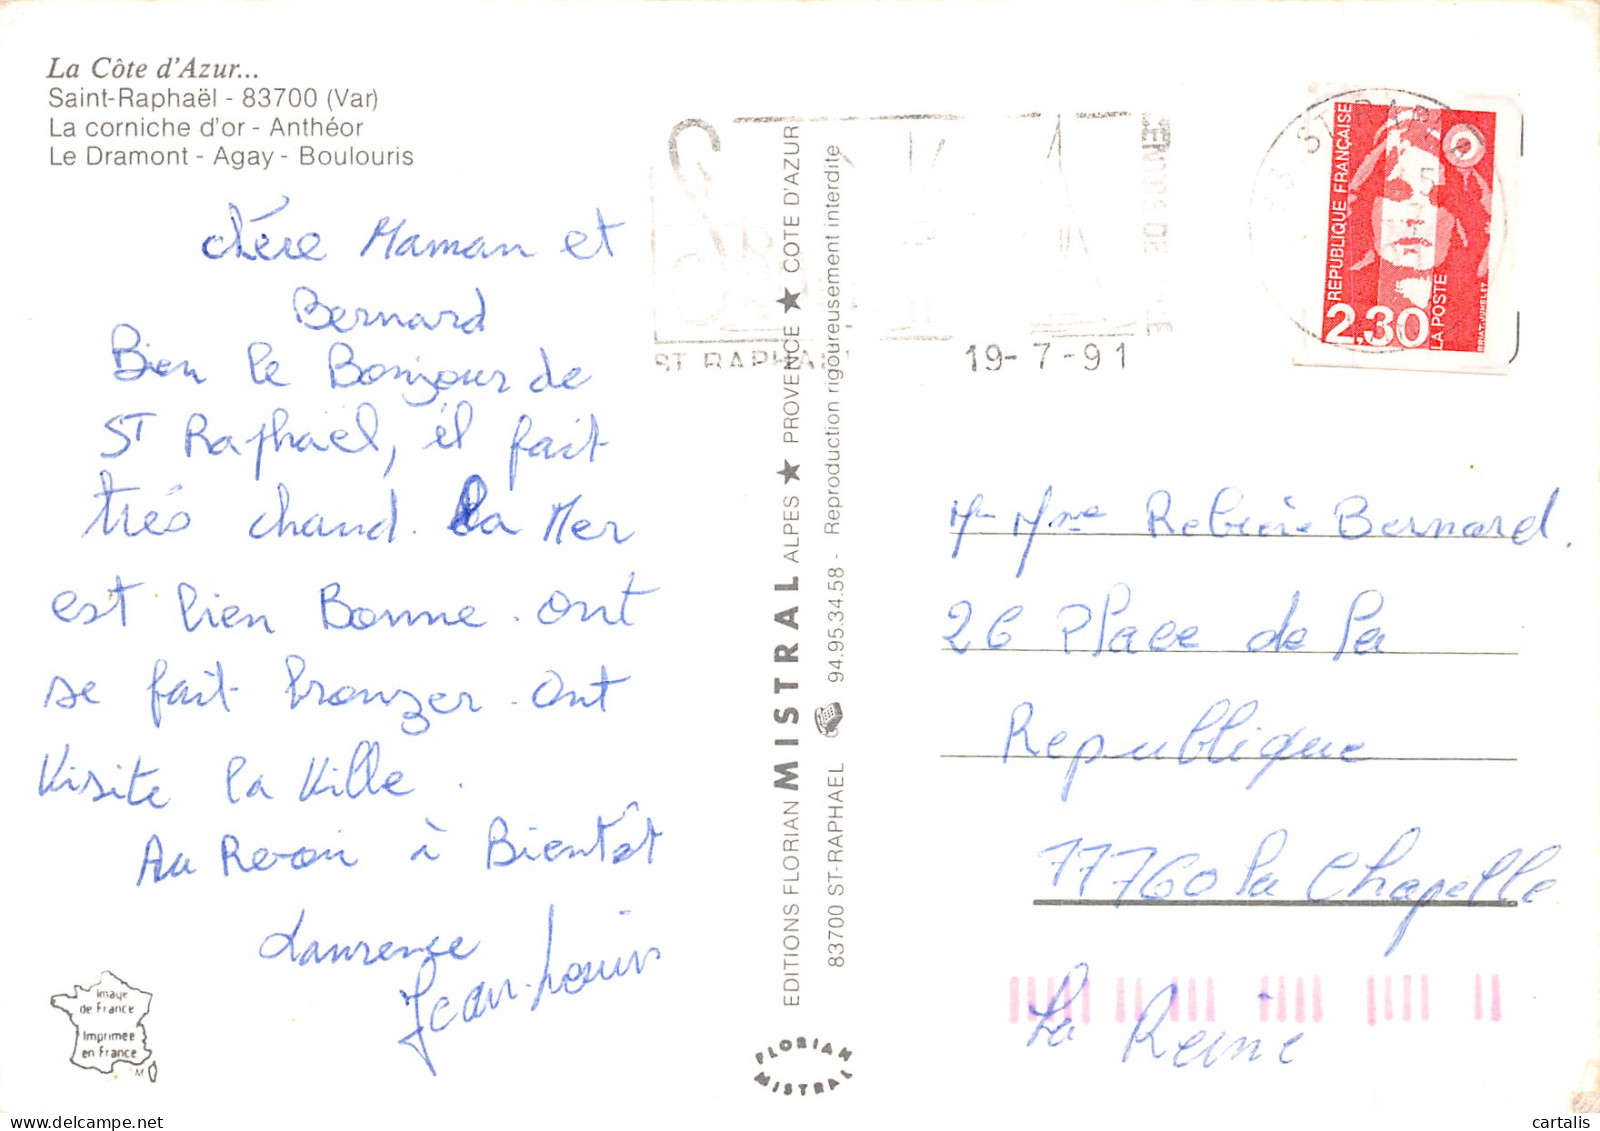 La Côte d'Azur...
Saint-Raphaël - 83700 (Var)
La corniche d'or - Anthéor
Le Dramont - Agay - Boulouris
chère Maman et
Bernard
Bien le Bonjour de
ST Raphaël, il fait
très chaud. La Mer
est bien Bonne. ont
se fait bronzer. ont
Visite la Ville.
Au Revoir à Bientôt
Laurence
Jean-Louis
Image
de France
Imprimée
en France
EDITIONS FLORIAN MISTRAL ALPES ★ PROVENCE ★ COTE D'AZUR
83700 ST-RAPHAEL 94.95.34.58 - Reproduction rigoureusement interdite
FLORIAN
MISTRAL
ST RAPHAEL
19-7-91
REPUBLIQUE FRANÇAISE
2,30
LA POSTE
BRIAT-JUMELET
Mr Mme Bernard.
26 Place de la
Republique
77760 la Chapelle
La Reine
cartalis